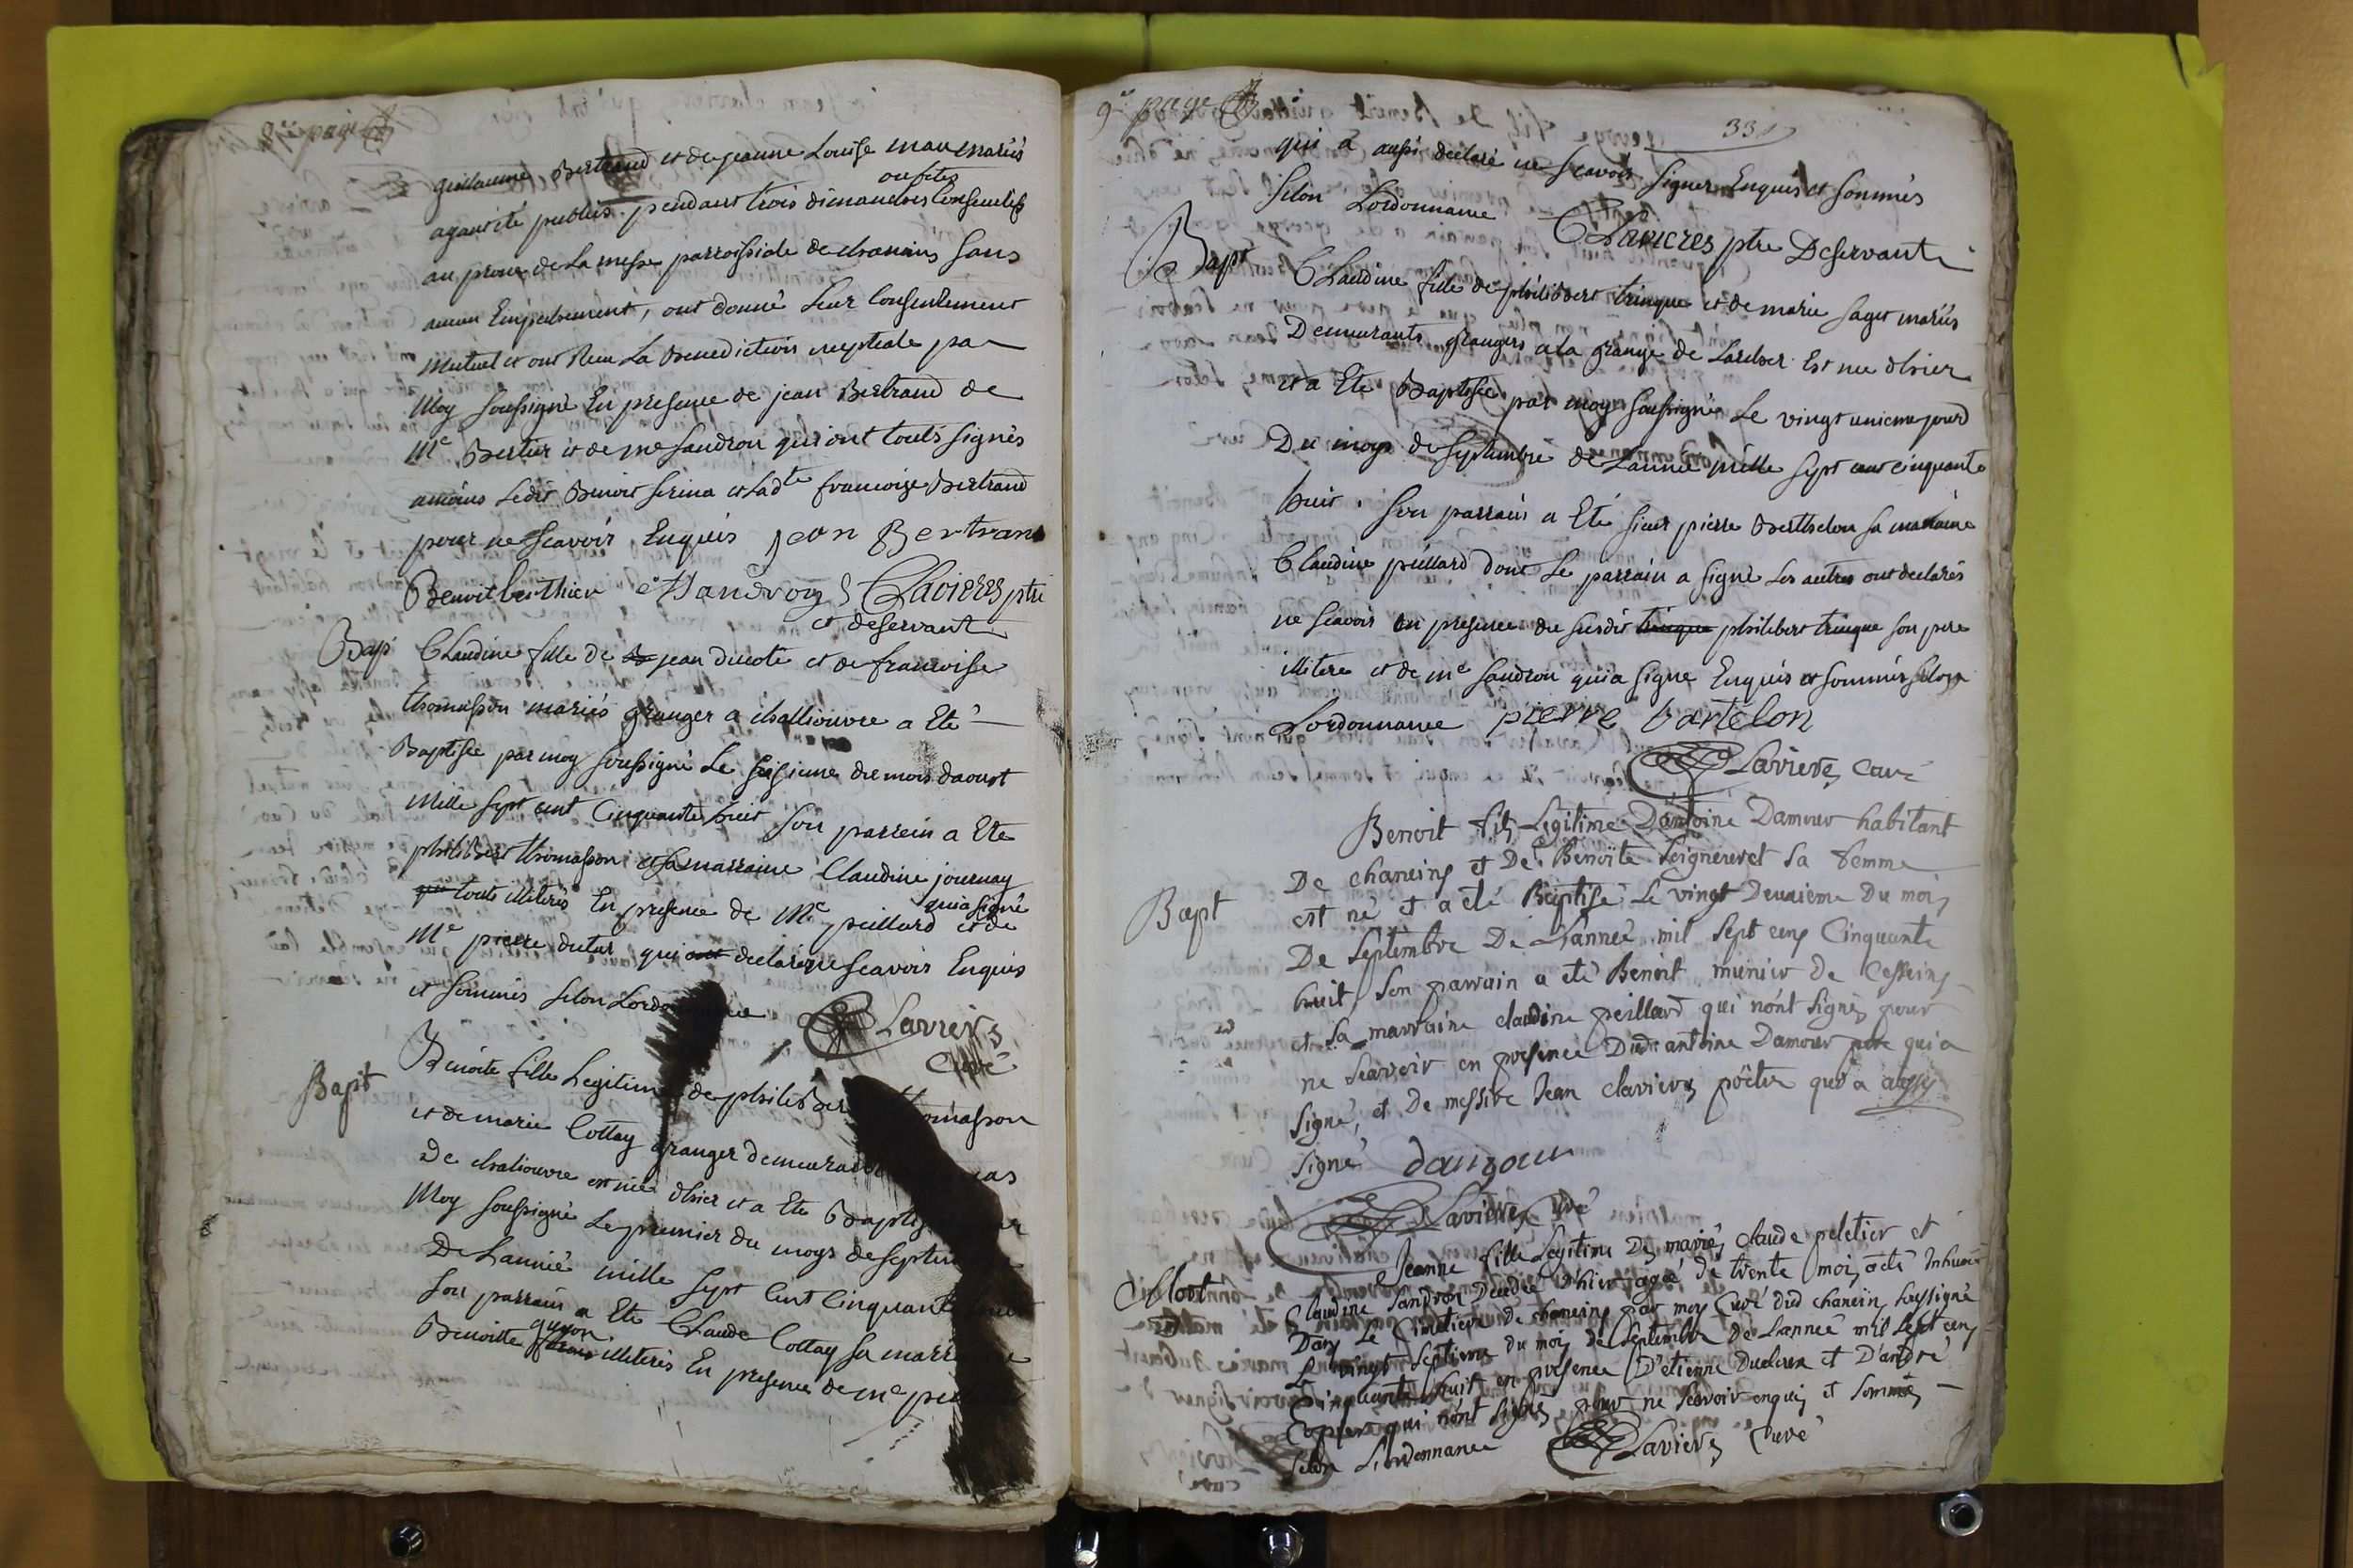 8e page
guillaume Bertrand et de jeanne Louise mariés
ont étés
ayant été publiés pendant trois dimanches consecutifs
au prone de La messe parroissiale de chaneins sans
aucun Empechement, ont donné Leur Consentement
Mutuel et ont Recu La Benediction nuptiale par
Moy soussigné En presence de jean Bertrand de
Me Bertier et de me sandron qui ont touts signés
amoins Ledit Benoit et Ladte francoise Bertrand
pour ne scavoir Enquis jean Bertrand
Benoit berthier Sandron Clavieres ptre
et deservant
Bap
Claudine fille de jean ducote et de francoise
thomasson mariés granger a chaliouvre a Eté
Baptisée par moy soussigné Le seisieme du mois daoust
Mille sept cent Cinquante huit son parrein a Ete
philibert thomasson et sa marraine Claudine journay
qui a signé
touts illiterés En presence de Me peillard et de
Me pierre dutar qui ont declaré ne scavoir Enquis
et sommés selon Lordonnance
Clavieres
Curé
Bapt
Benoite fille Legitime de philibert thomasson
et de marie Cottay granger demeurant
De chaliouvre est née dhier et a Ete Baptisée par
Moy soussigné Le premier du moys de septembre
De Lannée mille sept Cent Cinquante huit
son parrain a Ete Claude Cottay sa marraine
guyon
Benoitte illiterés En presence de me peillard
9e page
33
qui a aussi declaré ne scavoir signer Enquis et sommés
selon Lordonnance
Clavieres ptre Deservant
Bapt
Claudine fille de philibert trinque et de marie saget mariés
Demeurants grangers a La grange de Larcher Est née dhier
et a Ete Baptisée par moy soussigné Le vingt unieme jour
Du moys de septembre de Lannée mille sept cent cinquante
huit. son parrain a Eté sieur pierre Berthelon sa maraine
Claudine peillard dont Le parrain a signé Les autres ont declarés
ne scavoir en presence du susdit trinque philibert trinque son pere
illitere et de me sandron qui a signé Enquis et sommés selon
Lordonnance pierre bartelon
Clavieres Curé
Bapt
Benoit fils Legitime D'antoine Damour habitant
De chaneins et De Benoite seigneuret sa femme
est né et a eté Baptisé Le vingt Deuxieme Du mois
De septembre De L'année mil sept cens Cinquante
huit, son parrain a eté Benoit munier De Cesseins
et sa marraine claudine peillard qui n'ont signés pour
ne scavoir en presence Dud antoine Damour pere qui a
signé, et De messire Jean clavieres prêtre qui a aussy
signé damour
Clavieres Curé
Mort
Jeanne fille Legitime Des mariés claude peletier et
Claudine sandron Decedée D'hier agée de trente mois, a eté Inhumée
Dans Le Cimetiere de chaneins par moy Curé dud chaneins soussigné
Le vingt septieme du mois de septembre de L'année mil sept cens
Cinquante huit en presence D'etienne Duclaux et D'andré
qui n'ont signés pour ne scavoir enquis et sommés
selon L'ordonnance
Clavieres Curé